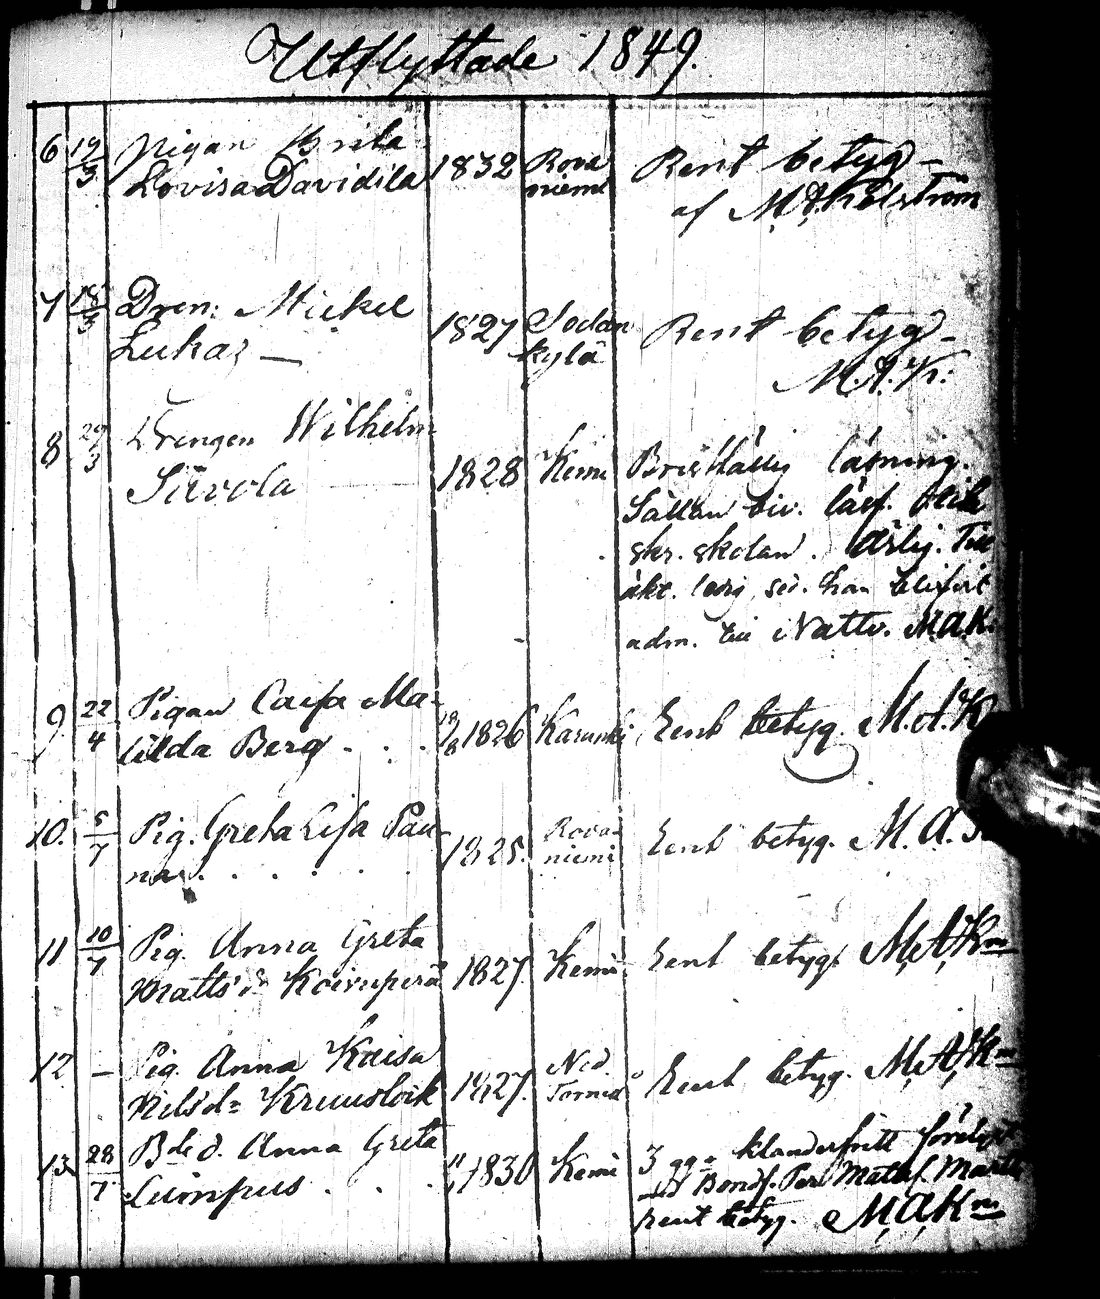 Utflyttade 1849.
6 19/3 Pigan Brita
Lovisa Davidila 1832 Rova
niemi Rent betyg
af M.A. Kelström
7 18/3 Dren: Mickel
Lukas 1827 Sodan
kylä Rent betyg
M.A.K:
8 29/3 Drengen Wilhelm
Siivola 1828 Kemi läsning.
Sällan biv. läsf.
skr. skolan. Ärlig. Till
akt. ledig, sed. han blifvit
adm. till Nattv. M.A.K.
9 22/4 Pigan Caisa Ma-
tilda Berg . . . 1826 Karunki Rent betyg. M.A.K
10. 5/7 Pig. Greta Lisa Pau-
na . . . . . 1825. Rova-
niemi Rent betyg. M.A.
11 10/7 Pig. Anna Greta
Matts d: Koivuperä 1827. Kemi Rent betyg. M.A.Km
12 – Pig. Anna Kaisa
Nelsd: 1827. Ned.
Torneå Rent betyg. M.A.Km
13 28/7 Bde d. Anna Greta
Lumpus . . . 1830 Kemi 3 ggr klanderfritt
Bondf. Per Matts.
Rent betyg. M.A.Km